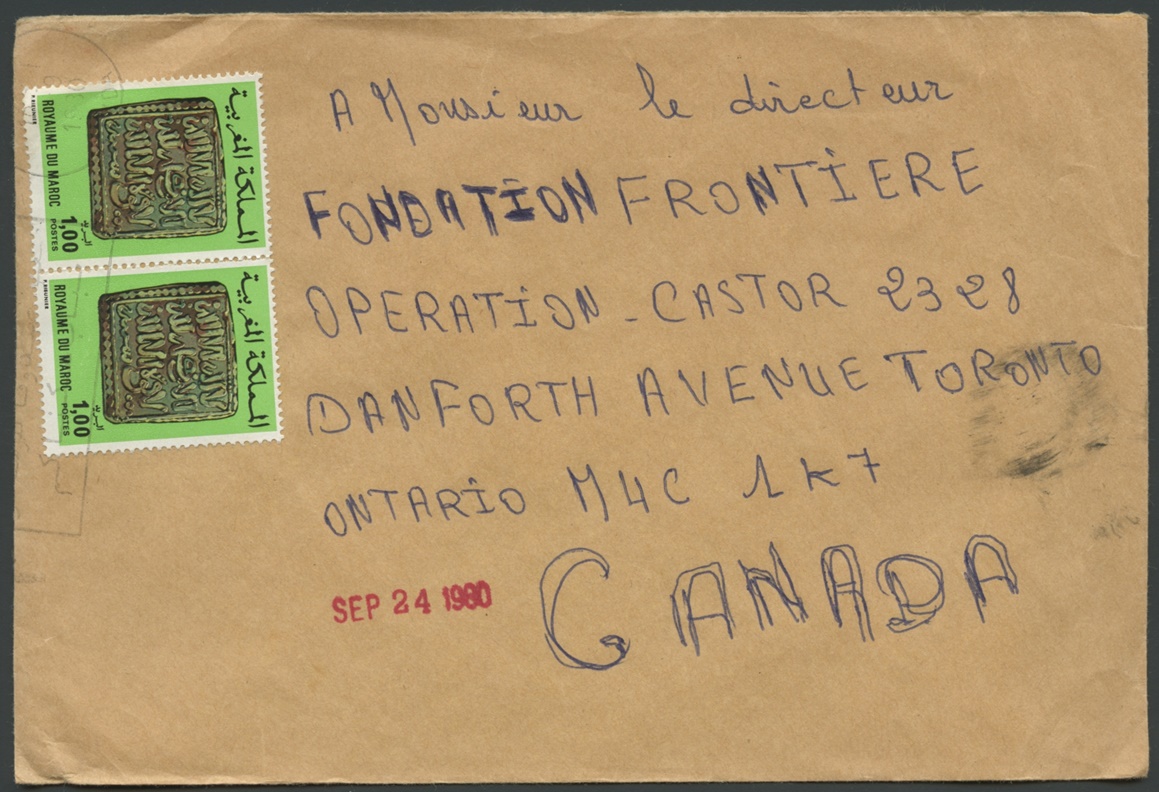 A Monsieur le directeur
FONDATION FRONTIERE
OPERATION - CASTOR 2328
DANFORTH AVENUE TORONTO
ONTARIO M4C 1K7
CANADA
SEP 24 1980
المملكة المغربية
ROYAUME DU MAROC
البريد
1,00
POSTES
المملكة المغربية
ROYAUME DU MAROC
البريد
1,00
POSTES